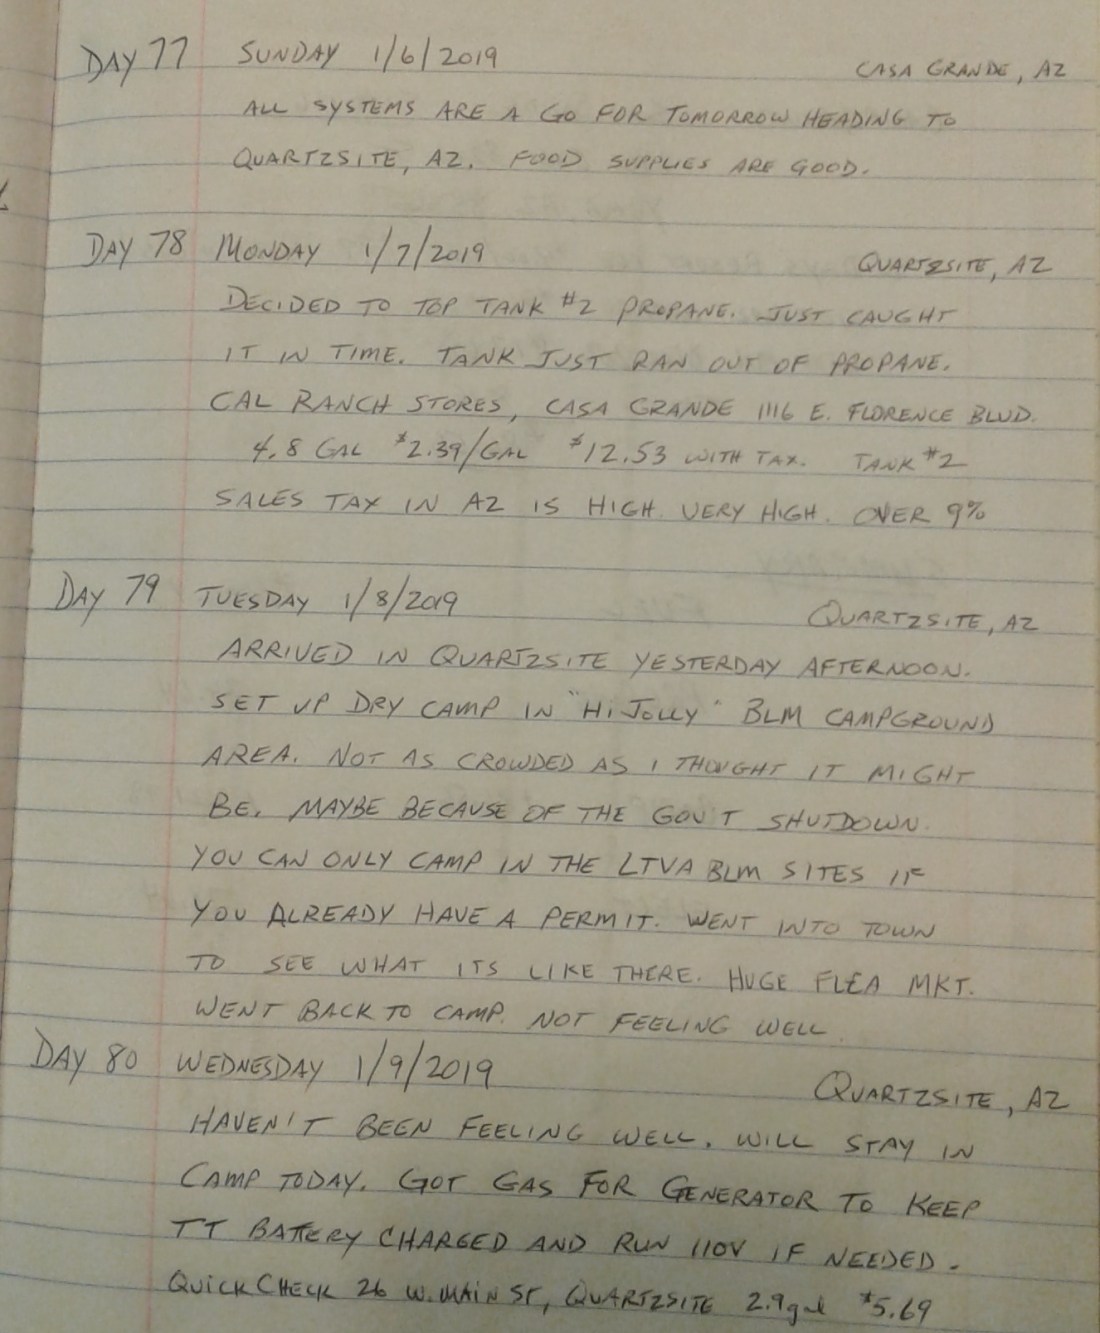 DAY 77 SUNDAY 1/6/2019 CASA GRANDE, AZ
ALL SYSTEMS ARE A GO FOR TOMORROW HEADING TO
QUARTZSITE, AZ. FOOD SUPPLIES ARE GOOD.
DAY 78 MONDAY 1/7/2019 QUARTZSITE, AZ
DECIDED TO TOP TANK #2 PROPANE. JUST CAUGHT
IT IN TIME. TANK JUST RAN OUT OF PROPANE.
CAL RANCH STORES, CASA GRANDE 1116 E. FLORENCE BLVD.
4.8 GAL $2.39/GAL $12.53 WITH TAX. TANK #2
SALES TAX IN AZ IS HIGH. VERY HIGH. OVER 9%
DAY 79 TUESDAY 1/8/2019 QUARTZSITE, AZ
ARRIVED IN QUARTZSITE YESTERDAY AFTERNOON.
SET UP DRY CAMP IN "Hi JOLLY" BLM CAMPGROUND
AREA. NOT AS CROWDED AS I THOUGHT IT MIGHT
BE. MAYBE BECAUSE OF THE GOV'T SHUTDOWN.
YOU CAN ONLY CAMP IN THE LTVA BLM SITES IF
YOU ALREADY HAVE A PERMIT. WENT INTO TOWN
TO SEE WHAT ITS LIKE THERE. HUGE FLEA MKT.
WENT BACK TO CAMP. NOT FEELING WELL.
DAY 80 WEDNESDAY 1/9/2019 QUARTZSITE, AZ
HAVEN'T BEEN FEELING WELL. WILL STAY IN
CAMP TODAY. GOT GAS FOR GENERATOR TO KEEP
TT BATTERY CHARGED AND RUN 110V IF NEEDED.
QUICK CHECK 26 W. MAIN ST, QUARTZSITE 2.9gal $5.69